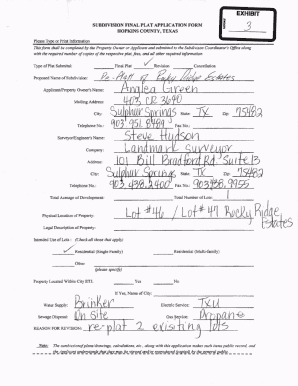 EXHIBIT
3
SUBDIVISION FINAL PLAT APPLICATION FORM
HOPKINS COUNTY, TEXAS
Please Type or Print Information
This form shall be completed by the Property Owner or Applicant and submitted to the Subdivision Coordinator's Office along
with the required number of copies of the respective plat, fees, and all other required information.
Type of Plat Submitted: Final Plat ✓ Revision Cancellation
Proposed Name of Subdivision: Re-Platt of Rocky Ridge Estates
Applicant/Property Owner's Name: Anglea Green
Mailing Address 403 CR 3690
City: Sulphur Springs State: TX Zip: 75482
Telephone No.: 903 951 8989 Fax No.:
Surveyor/Engineer's Name: Steve Hudson
Company: Landmark Surveyor
Address: 101 Bill Bradford Rd. Suite 13
City: Sulphur Springs State: TX Zip: 75482
Telephone No.: 903.438.2400 Fax No.: 903.438.9955
Total Acreage of Development: Total Number of Lots: 1
Physical Location of Property: Lot #46 / Lot #47 Rocky Ridge Estates
Legal Description of Property:
Intended Use of Lots: (Check all those that apply)
✓ Residential (Single-Family) Residential (Multi-family)
Other
(please specify)
Property Located Within City ETJ: Yes No
If Yes, Name of City:
Water Supply: Brinker Electric Service: TXU
Sewage Disposal: On site Gas Service: Propane
REASON FOR REVISION: re-plat 2 existing lots
Note: The subdivision plans/drawings, calculations, etc., along with this application makes such items public record, and
the applicant understands that they may be viewed and/or reproduced (copied) by the general public.